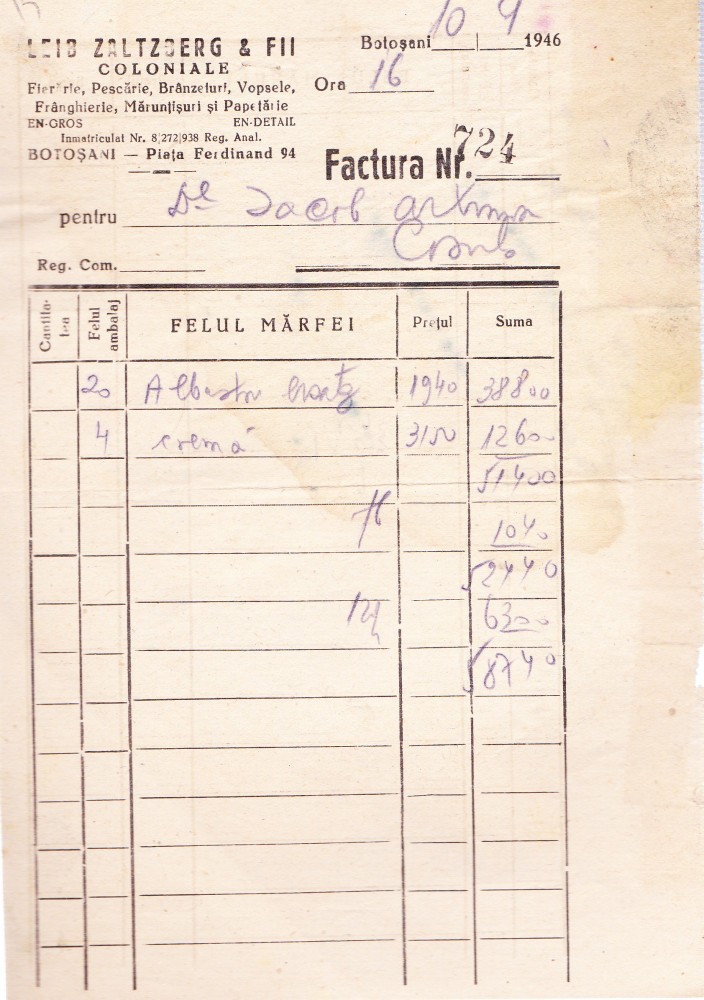 LEIB ZALTZBERG & FII
COLONIALE
Fierărie, Pescărie, Brânzeturi, Vopsele,
Frânghierie, Mărunțișuri și Papetărie
EN-GROS EN-DETAIL
Inmatriculat Nr. 8|272|938 Reg. Anal.
BOTOȘANI — Piața Ferdinand 94
Botoșani 10 | 9 1946
Ora 16
Factura Nr. 724
pentru Dl Iacob
Reg. Com.
Cantitatea Felul ambalaj FELUL MĂRFEI Prețul Suma
20 Albastru 1940 38800
4 cremă 3150 12600
51400
1040
52440
6300
58740